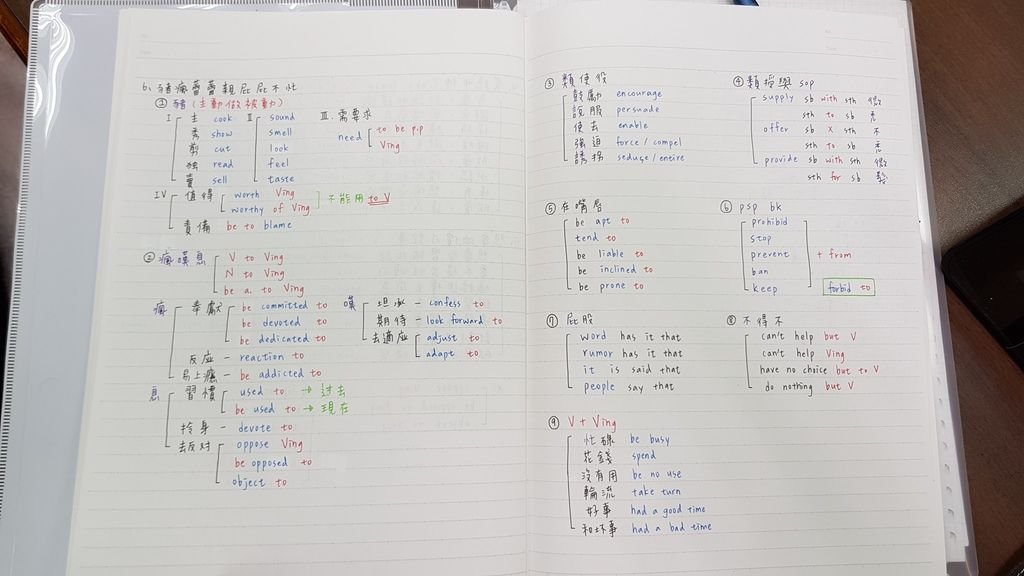 b、豬瘋蕾蕾親屁屁不忙
① 豬 (主動做被動)
I 主 cook II sound III 需要求
秀 show smell need to be p.p
剪 cut look Ving
独 read feel
賣 sell taste
IV 值得 worth Ving
worthy of Ving 不能用 to V
責備 be to blame
② 瘋嘆息 V to Ving
N to Ving
be a. to Ving
瘋 奉獻 be committed to 嘆 坦承 - confess to
be devoted to 期待 - look forward to
be dedicated to 去適應 adjust to
反應 - reaction to adapt to
易上癮 - be addicted to
息 習慣 used to → 过去
be used to → 現在
devote to
去反对 oppose Ving
be opposed to
object to
③ 類使役
鼓勵 encourage
說服 persuade
使去 enable
強迫 force / compel
誘拐 seduge / entire
④ 類授與 sop
supply sb with sth
sth to sb
offer sb X sth 不
sth to sb
provide sb with sth
sth for sb
⑤ 在嘴唇
be apt to
tend to
be liable to
be inclined to
be prone to
⑥ psp bk
prohibid
stop
prevent + from
ban
keep forbid to
⑦ 屁股
word has it that
rumor has it that
it is said that
people say that
⑧ 不得不
can't help but V
can't help Ving
have no choice but to V
do nothing but V
⑨ V + Ving
忙碌 be busy
花錢 spend
沒有用 be no use
輪流 take turn
好事 had a good time
和坏事 had a bad time